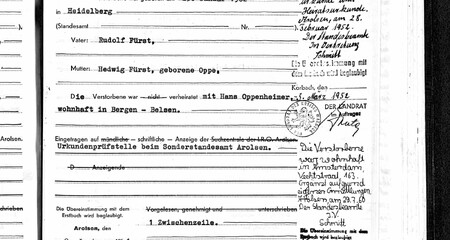 in Heidelberg
(Standesamt Nr. )
Vater: Rudolf Fürst,
Mutter: Hedwig Fürst, geborene Oppe,
Die Verstorbene war — nicht — verheiratet mit Hans Oppenheimer,
wohnhaft in Bergen - Belsen.
Eingetragen auf mündliche — schriftliche — Anzeige der Sucheentrale der I.R.O. Arolsen
Urkundenprüfstelle beim Sonderstandesamt Arolsen.
D Anzeigende
Die Übereinstimmung mit dem
Erstbuch wird beglaubigt.
Arolsen, den
Vorgelesen, genehmigt und unterschrieben
1 Zwischenzeile.
Heiratsurkunde.
Arolsen, am 28.
Februar 1952.
Der Standesbeamte
In Vertretung
Schmitt
Korbach, den
5. März 1952
DER LANDRAT
im Auftrage
Die Verstorbene
war wohnhaft
in Amsterdam,
163.
Ergänzt aufgrund
Ermittlungen
Arolsen, am 29.7.60
Der Standesbeamte
I.V.
Schmitt
Die Übereinstimmung mit dem
Erstbuch wird beglaubigt
Arolsen.
schrieben